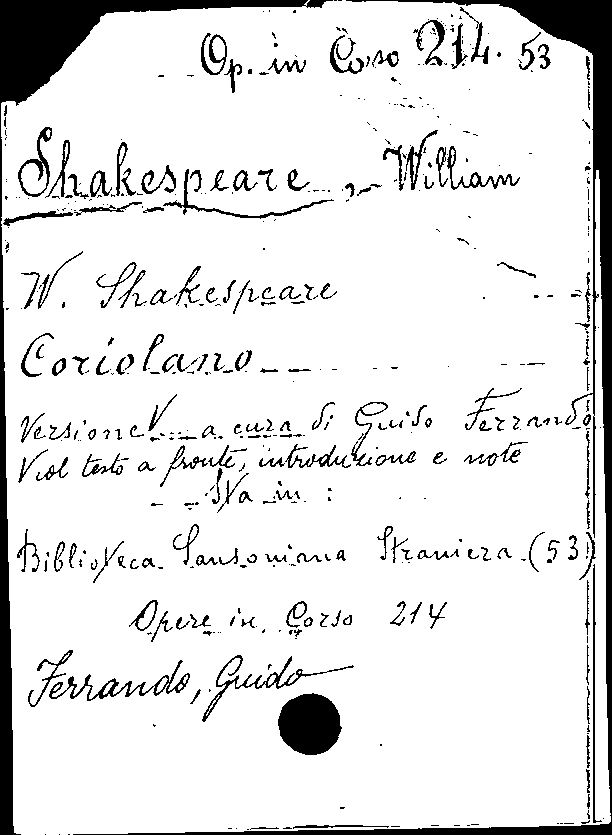 Op. in Corso 214. 53
Shakespeare, William
W. Shakespeare
Coriolano
Versione V a cura di Guido Ferrando
V col testo a fronte, introduzione e note
Sta in :
Biblioteca Sansoniana Straniera (53)
Opere in Corso 214
Ferrando, Guido